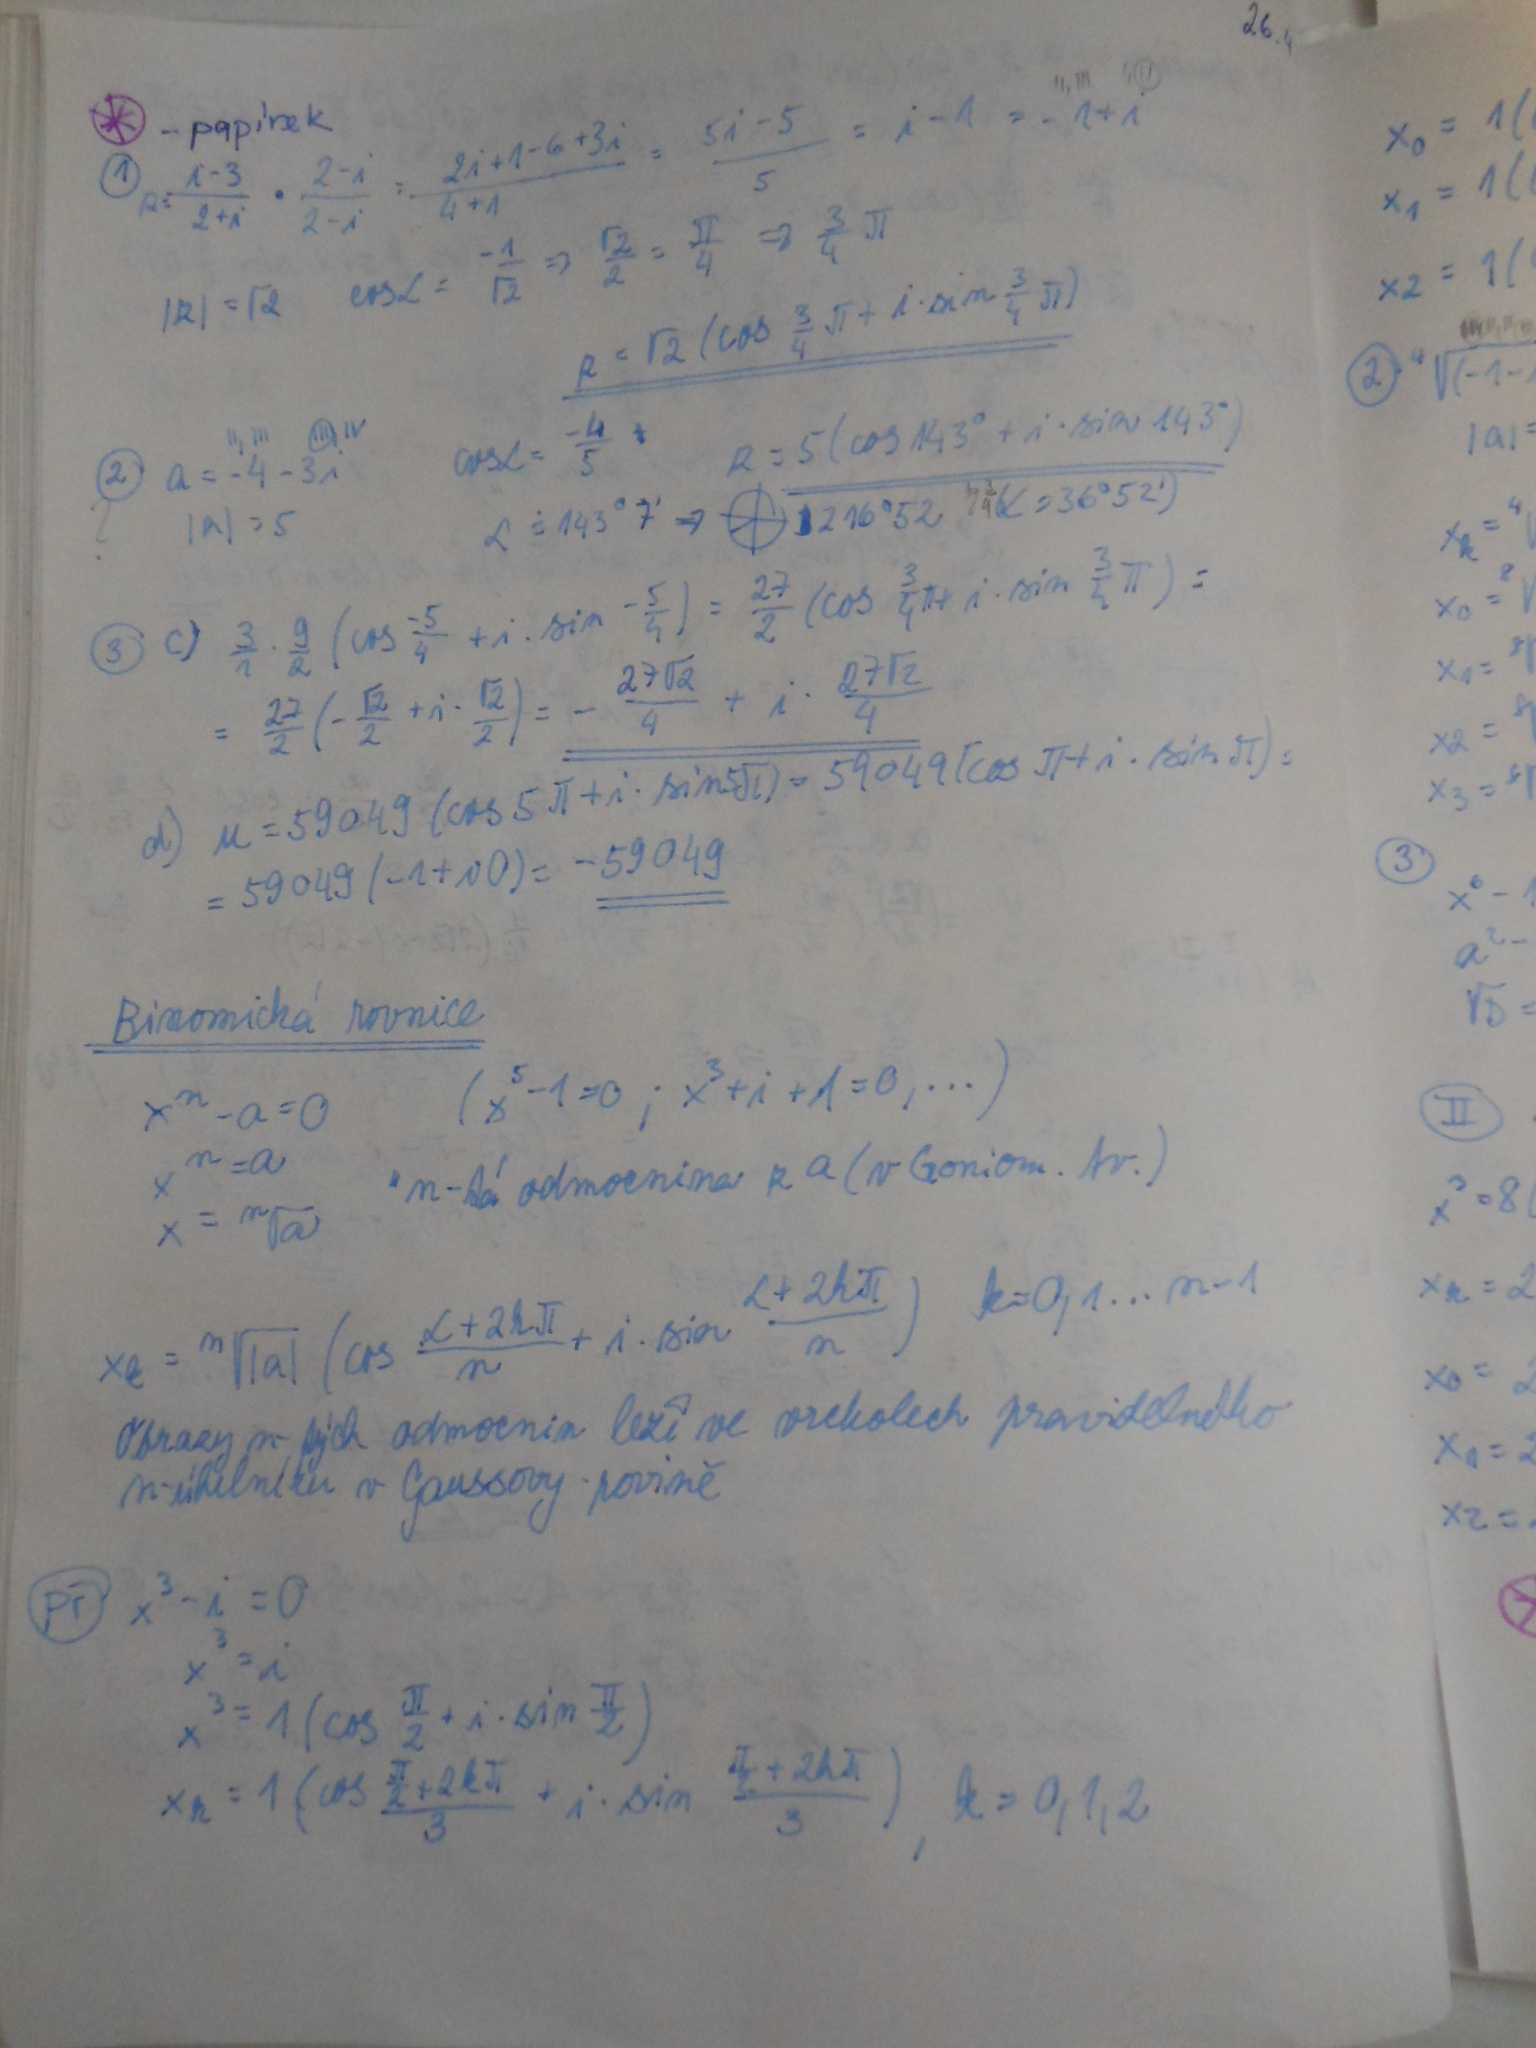 26.4
- papírek
① z = (i-3)/(2+i) · (2-i)/(2-i) = (2i+1-6+3i)/(4+1) = (5i-5)/5 = i-1 = -1+i
|z| = √2 cosα = -1/√2 ⇒ √2/2 = π/4 ⇒ 3/4 π
z = √2 (cos 3/4 π + i·sin 3/4 π)
② a = -4-3i cosα = -4/5 z = 5(cos 143° + i·sin 143°)
|a| = 5 α ≐ 143°7' ⇒ 216°52 α = 36°52')
③ c) 3/1 · 9/2 (cos -5/4 + i·sin -5/4) = 27/2 (cos 3/4 π + i·sin 3/4 π) =
= 27/2 (-√2/2 + i·√2/2) = - 27√2/4 + i· 27√2/4
d) u = 59049 (cos 5π + i·sin 5π) = 59049 (cos π + i·sin π) =
= 59049 (-1+i0) = -59049
Binomická rovnice
xⁿ - a = 0 (x⁵-1=0 ; x³+i+1=0, ...)
xⁿ = a
x = ⁿ√a n-tá odmocnina z a (v Goniom. tv.)
xₖ = ⁿ√|a| (cos (α+2kπ)/n + i·sin (α+2kπ)/n) k=0,1...n-1
Obrazy n-tých odmocnin leží ve vrcholech pravidelného
n-úhelníku v Gaussovy rovině
př x³ - i = 0
x³ = i
x³ = 1 (cos π/2 + i·sin π/2)
xₖ = 1 (cos (π/2+2kπ)/3 + i·sin (π/2+2kπ)/3), k = 0,1,2
x₀ = 1(
x₁ = 1(
x₂ = 1(
② ⁴√(-1-
|a| =
xₖ = ⁴√
x₀ = ⁸√
x₁ = ⁸√
x₂ = ⁸√
x₃ = ⁸√
③
x⁶ - 1
a² -
√D =
II
x³ = 8(
xₖ = 2
x₀ = 2
x₁ = 2
x₂ =